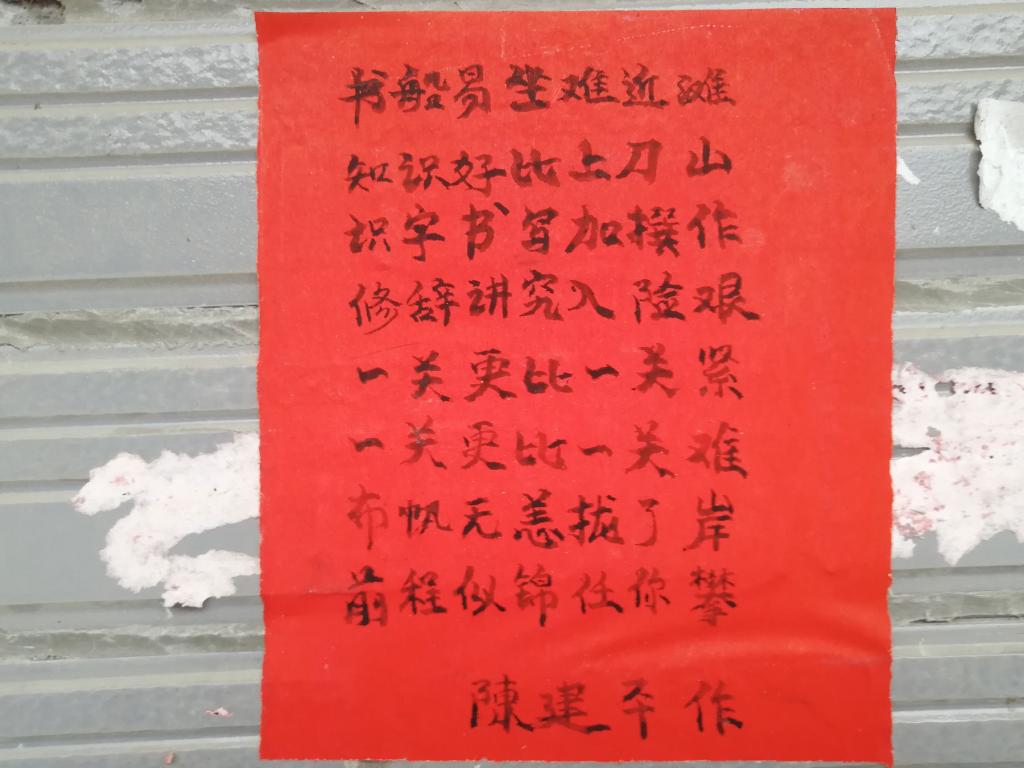 书船易坐难近滩
知识好比上刀山
识字书写加撰作
修辞讲究入险艰
一关更比一关紧
一关更比一关难
布帆无恙拢了岸
前程似锦任你攀
陳建平作